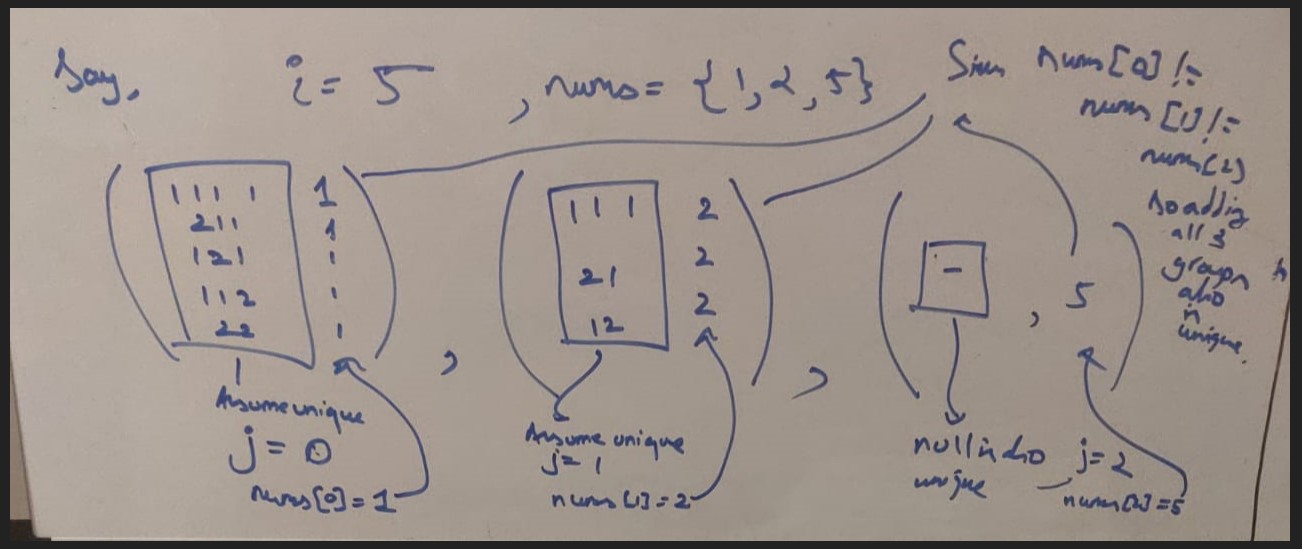 Say, i = 5 , nums = {1, 2, 5}
Since nums[0] !=
nums[1] !=
nums[2]
So adding
all 3
groups is
also
is
unique.
1 1 1 1 1
2 1 1 1
1 2 1 1
1 1 2 1
2 2 1
,
1 1 1 2
2 1 2
1 2 2
,
- , 5
Assume unique
j = 0
nums[0] = 1
Assume unique
j = 1
nums[1] = 2
null is also
unique
j = 2
nums[2] = 5